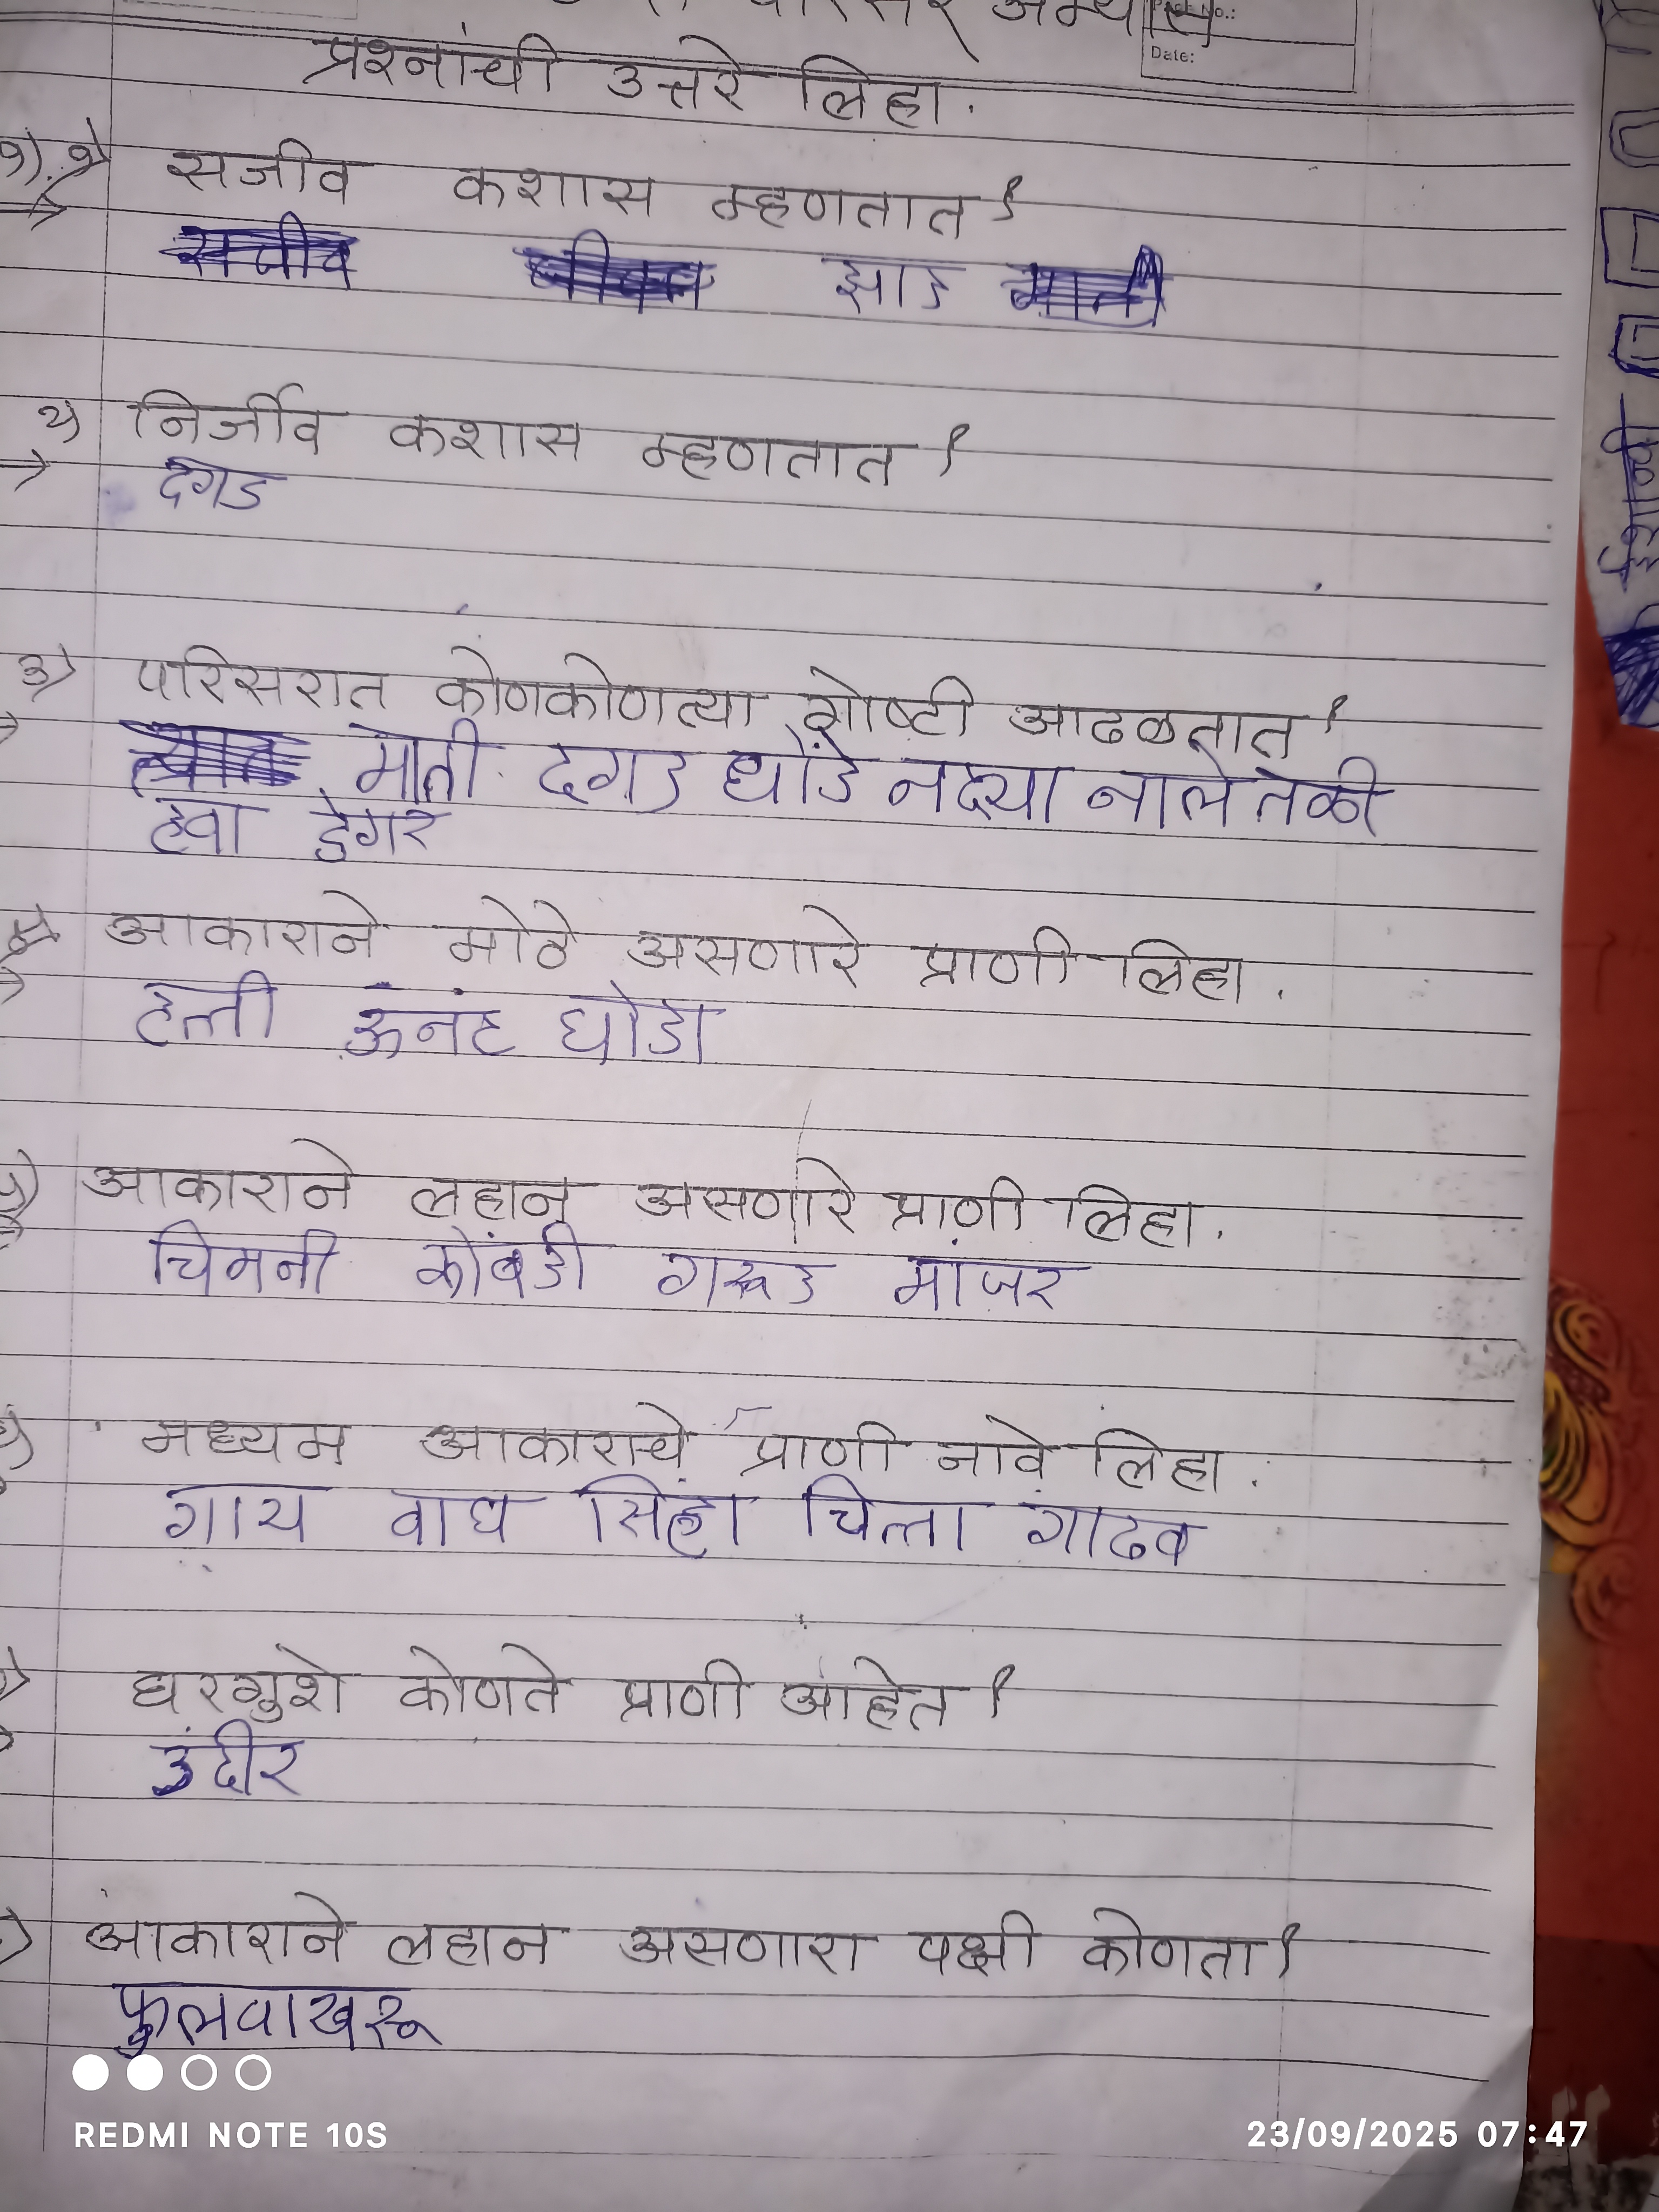 परिसर अभ्यास
Page No.:
Date:
प्रश्नांची उत्तरे लिहा.
१) १) सजीव कशास म्हणतात?
झाड
२) निर्जीव कशास म्हणतात?
→ दगड
३) परिसरात कोणकोणत्या गोष्टी आढळतात?
माती दगड धोंडे नद्या नाले तळी
हवा डेगर
४) आकाराने मोठे असणारे प्राणी लिहा.
हत्ती ऊनंट घोडा
५) आकाराने लहान असणारे प्राणी लिहा.
चिमनी कोंबडी गरूड मांजर
मध्यम आकाराचे प्राणी नावे लिहा.
गाय वाघ सिंहा चित्ता गाढव
घरगुशे कोणते प्राणी आहेत?
उंदीर
आकाराने लहान असणारा पक्षी कोणता?
फुलपाखरू
REDMI NOTE 10S
23/09/2025 07:47